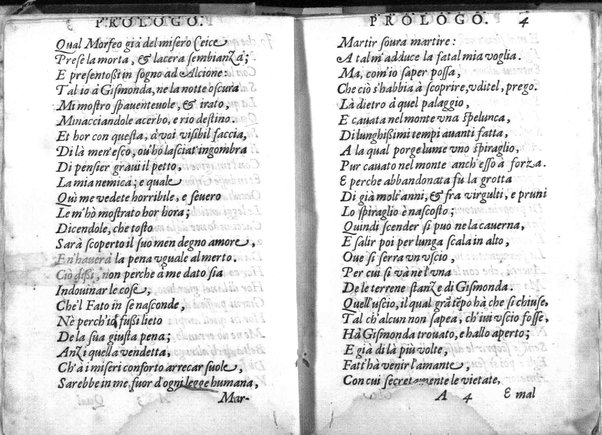 PROLOGO.
Qual Morfeo già del misero Ceice
Prese la morta, & lacera sembianza;
E presentossi in sogno ad Alcione:
Tal io à Gismonda, ne la notte oscura
Mi mostro spauenteuole, & irato,
Minacciandole acerbo, e rio destino.
Et hor con questa, à voi visibil faccia,
Di là men'esco, ou'hò lasciat'ingombra
Di pensier graui il petto,
La mia nemica; e quale
Quì me vedete horribile, e seuero
Le m'hò mostrato hor hora;
Dicendole, che tosto
Sarà scoperto il suo men degno amore,
En'hauerà la pena vguale al merto.
Ciò dissi, non perche à me dato sia
Indouinar le cose,
Che'l Fato in se nasconde,
Nè perch'io fussi lieto
De la sua giusta pena;
Anzi quella vendetta,
Ch'à i miseri conforto arrecar suole,
Sarebbe in me, fuor d'ogni legge humana,
Mar-
PROLOGO. 4
Martir soura martire:
A tal m'adduce la fatal mia voglia.
Ma, com'io saper possa,
Che ciò s'habbia à scoprire, vditel, prego.
Là dietro à quel palaggio,
E cauata nel monte vna spelunca,
Di lunghissimi tempi auanti fatta,
A la qual porge lume vno spiraglio,
Pur cauato nel monte anch'esso à forza.
E perche abbandonata fu la grotta
Di già molt'anni, & frà virgulti, e pruni
Lo spiraglio è nascosto;
Quindi scender si puo ne la cauerna,
E salir poi per lunga scala in alto,
Oue si serra vn vscio,
Per cui si và ne l'vna
De le terrene stanze di Gismonda.
Quell'vscio, il qual grā tēpo hà che si chiuse,
Tal ch'alcun non sapea, ch'iui vscio fosse,
Hà Gismonda trouato, e hallo aperto;
E già di là più volte,
Fatt'hà venir l'amante,
Con cui secretamente le vietate,
A 4 E mal